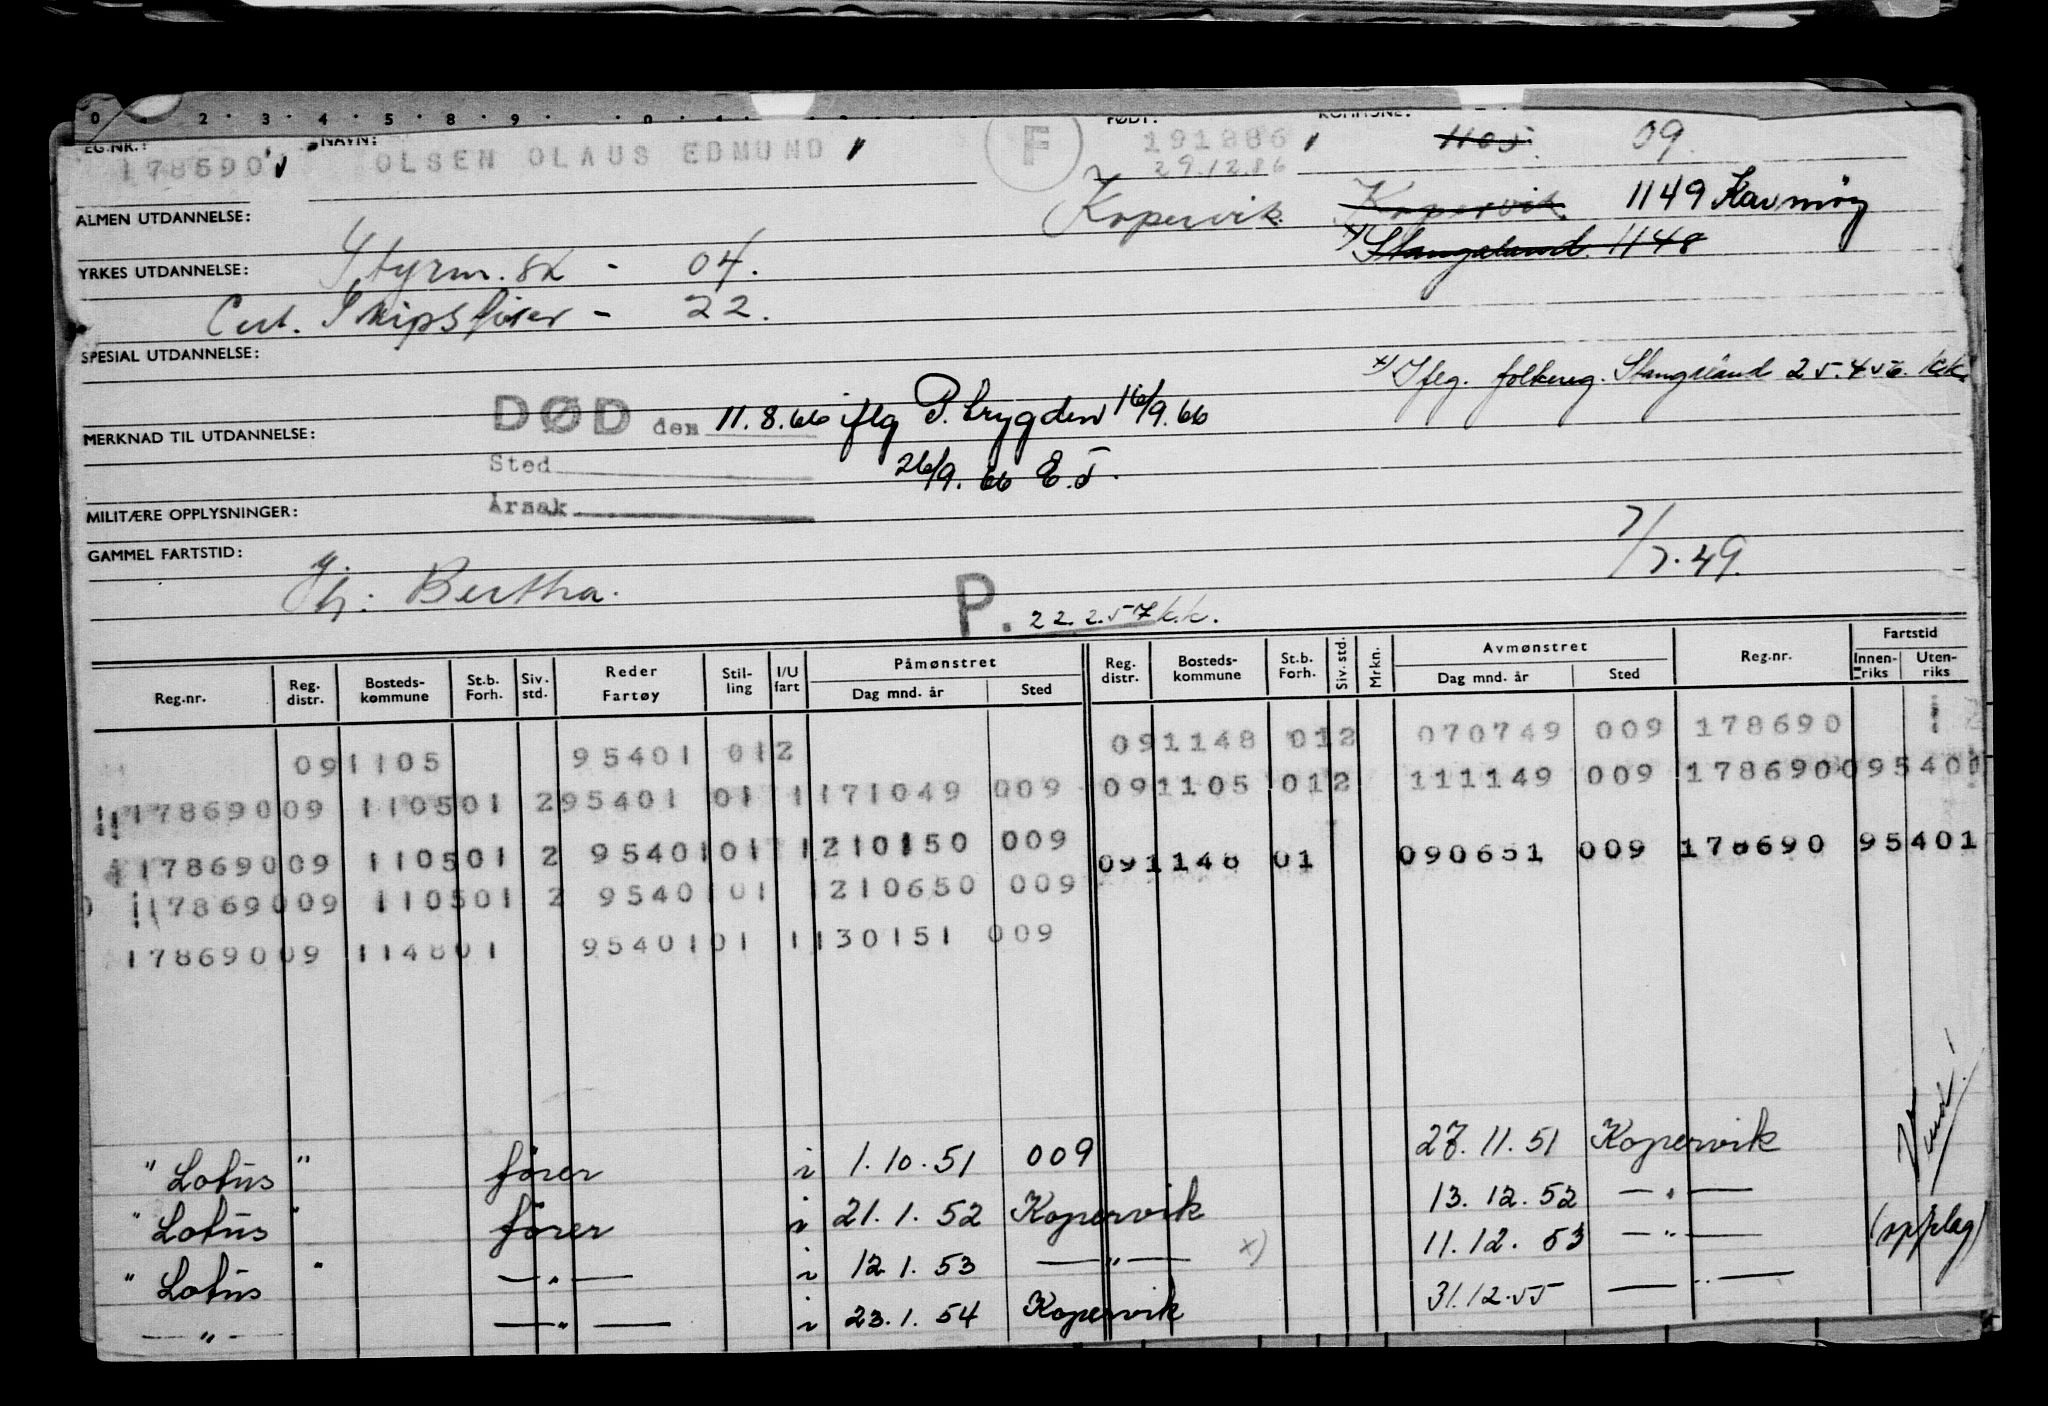 0 2 3 4 5 8 9 0
EG.NR.: NAVN: FØDT: KOMMUNE:
178690 OLSEN OLAUS EDMUND F 191886 1105 09.
29.12.86
ALMEN UTDANNELSE: Kopervik Kopervik 1149 Karmøy
x) Stangeland 1148
YRKES UTDANNELSE: Styrm.sk - 04.
Cert. Skipsfører - 22.
SPESIAL UTDANNELSE:
x) Iflg. folkereg. Stangeland 25.4.56. kk
MERKNAD TIL UTDANNELSE: DØD den 11.8.66 iflg P. trygden 16/9.66
Sted 26/9.66 E.J.
MILITÆRE OPPLYSNINGER: Årsak
GAMMEL FARTSTID: 7/7.49.
g. Bertha.
P. 22.2.57 k.k.
Reg.nr. Reg. distr. Bosteds-kommune St.b. Forh. Siv. std. Reder Fartøy Stil-ling I/U fart Påmønstret Dag mnd. år Sted Reg. distr. Bosteds-kommune St.b. Forh. Siv. std. Mrkn. Avmønstret Dag mnd. år Sted Reg.nr. Fartstid Innen-riks Uten-riks
09 1105 95401 01 2 09 1148 01 2 070749 009 178690
178690 09 1105 01 2 95401 01 1 171049 009 09 1105 01 2 111149 009 178690 095401
178690 09 1105 01 2 95401 01 1 210150 009 09 1148 01 090651 009 178690 95401
178690 09 1105 01 2 95401 01 1 210650 009
178690 09 1148 01 95401 01 1 130151 009
"Lotus" fører i 1.10.51 009 27.11.51 Kopervik
"Lotus" fører i 21.1.52 Kopervik 13.12.52 — " —
"Lotus" — " — i 12.1.53 — " — x) 11.12.53 — " — (opplag)
— " — — " — i 23.1.54 Kopervik 31.12.55 — " —